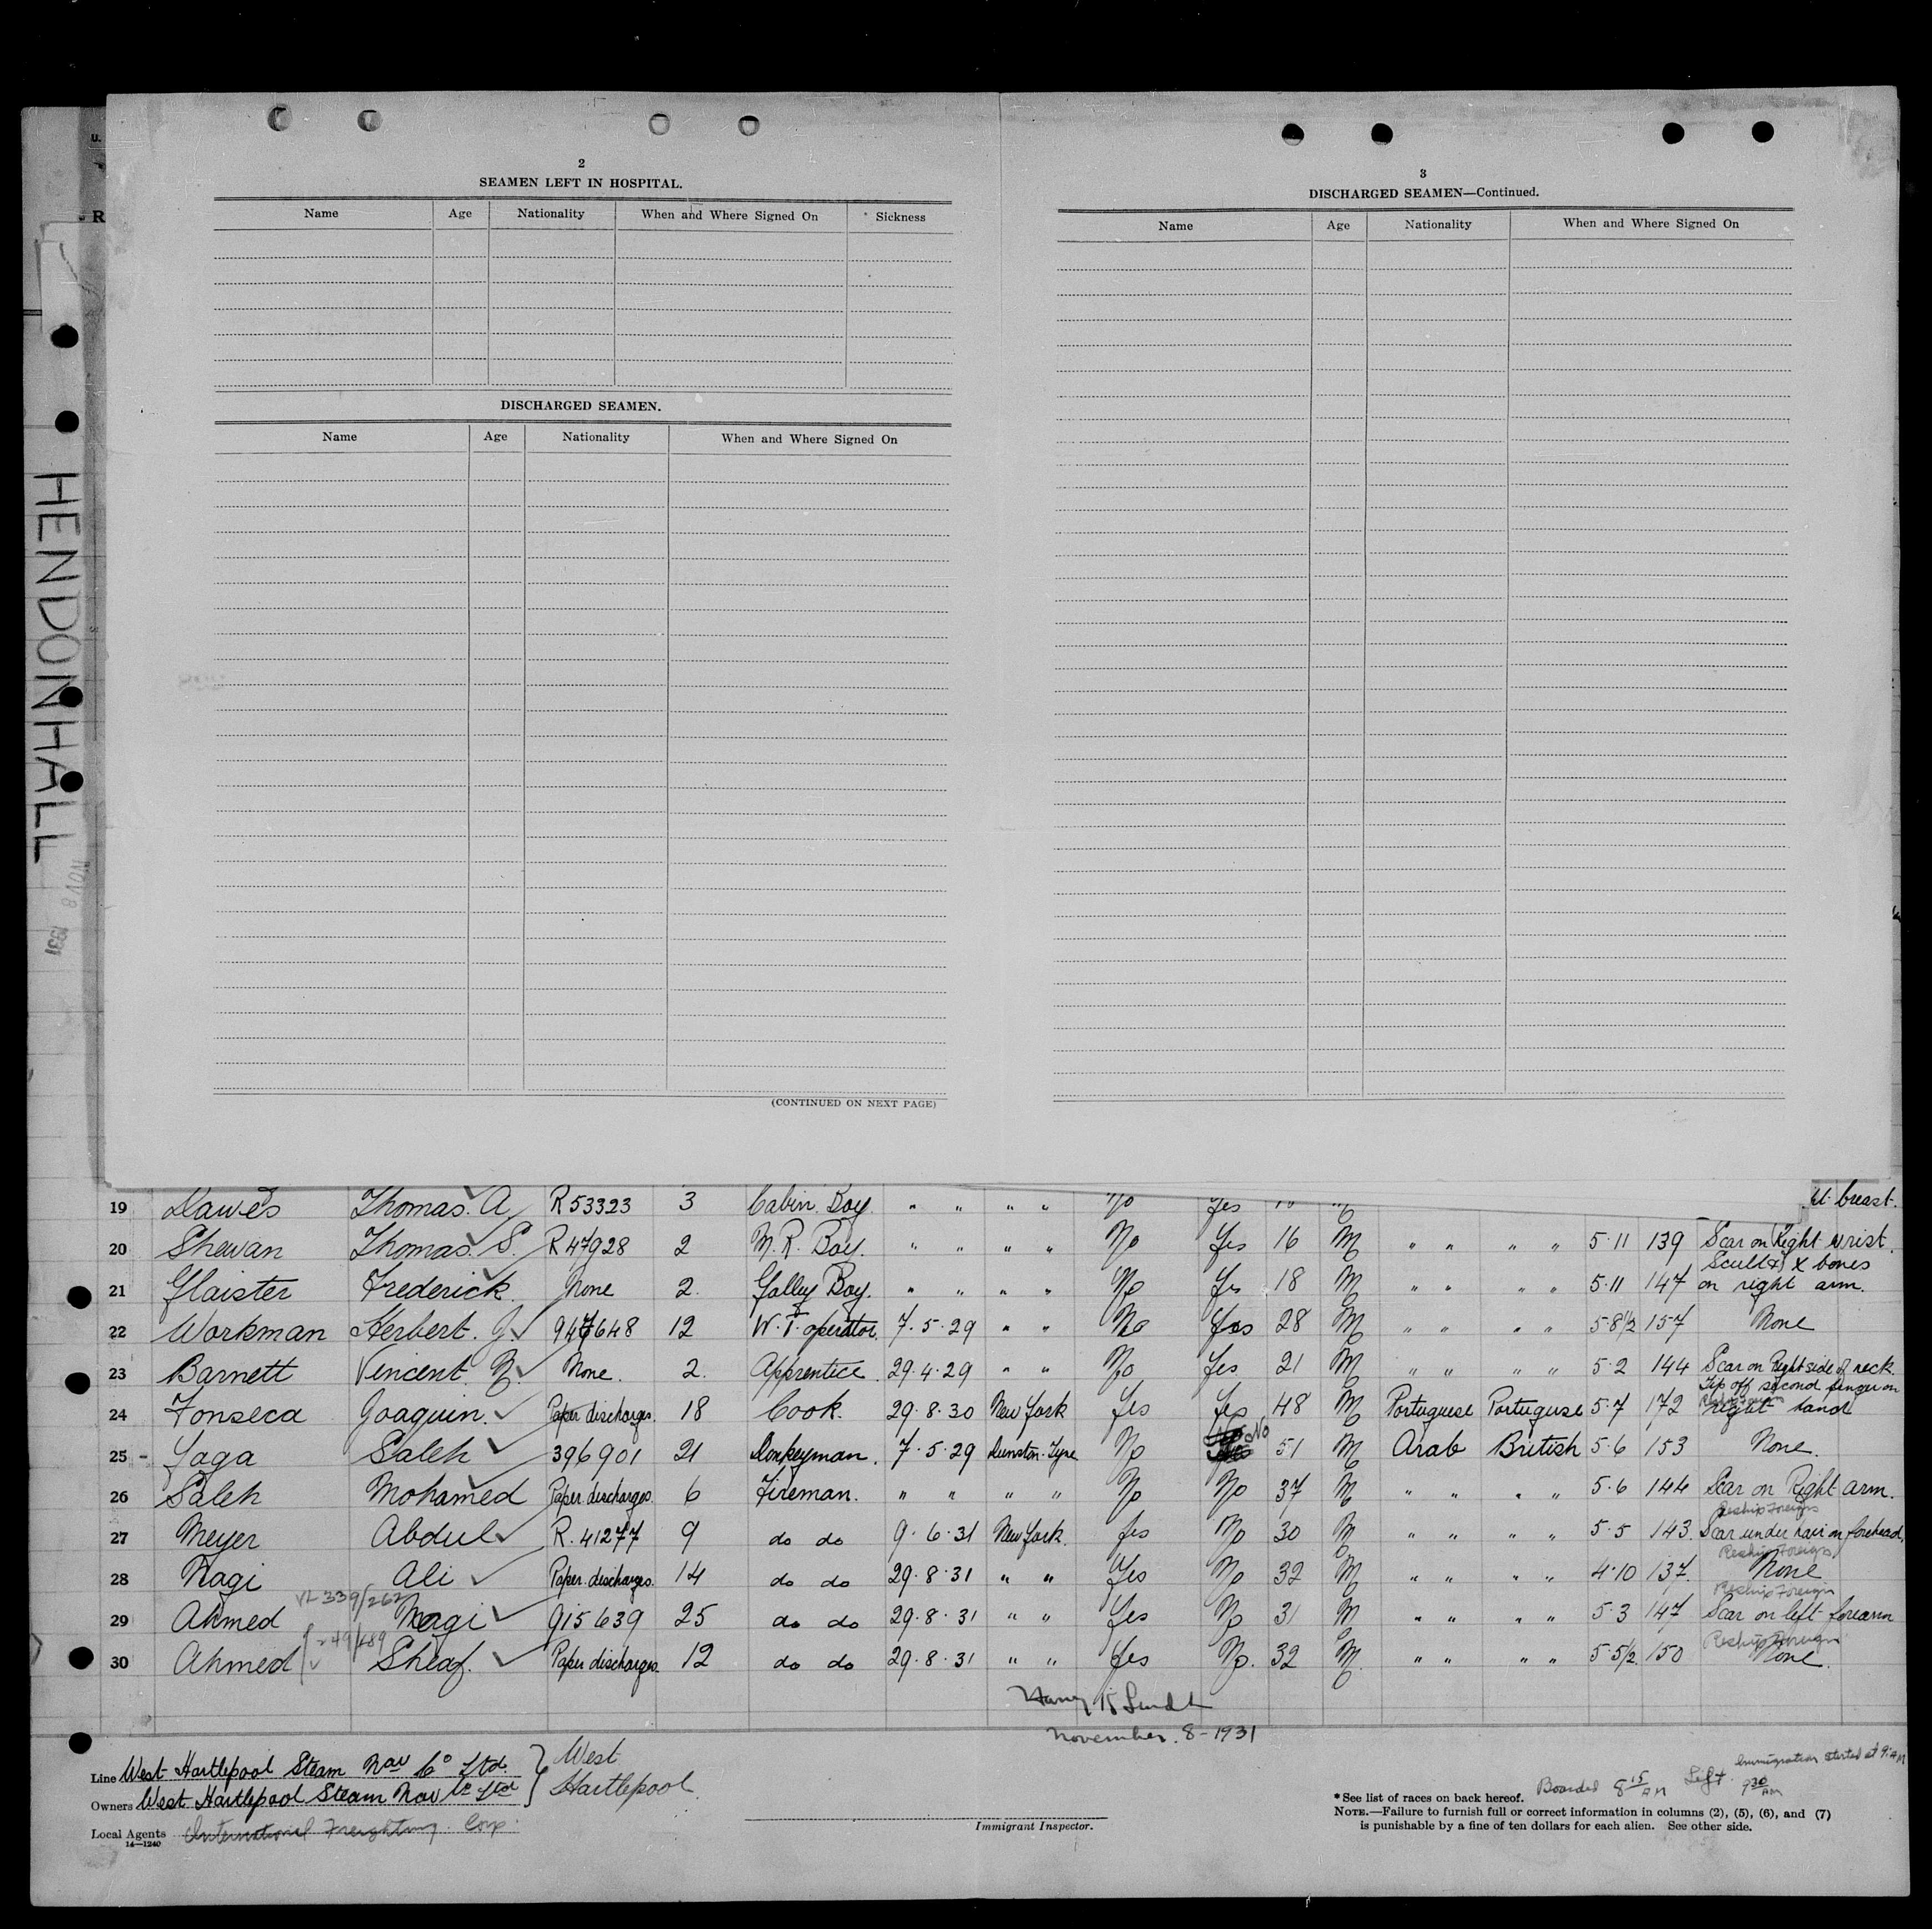 HENDONHALL
NOV 8 1931
U.
R
2
SEAMEN LEFT IN HOSPITAL.
Name Age Nationality When and Where Signed On Sickness
DISCHARGED SEAMEN.
Name Age Nationality When and Where Signed On
(CONTINUED ON NEXT PAGE)
3
DISCHARGED SEAMEN—Continued.
Name Age Nationality When and Where Signed On
19 Dawes Thomas. A R 53323 3 Cabin Boy. " " " " No Yes breast.
20 Shewan Thomas. S. R 47928 2 M. R. Boy. " " " " No Yes 16 M " " " " 5·11 139 Scar on Right wrist.
21 Glaister Frederick. None 2. Galley Boy. " " " " No Yes 18 M " " " " 5·11 147 Scull & X bones on right arm.
22 Workman Herbert. J. 947648 12 W. T. operator. 7·5·29 " " No Yes 28 M " " " " 5·8 1/2 157 None
23 Barnett Vincent. N. None. 2. Apprentice. 29·4·29 " " No Yes 21 M " " " " 5·2 144 Scar on Right side of neck.
24 Fonseca Joaquin. Paper discharges. 18 Cook. 29·8·30 New York Yes Yes 48 M Portuguese Portuguese 5·7 172 Tip off second finger on right hand
25 - Yaga Saleh 396901 21 Donkeyman. 7·5·29 Dunston-Tyne No No 51 M Arab British 5·6 153 None.
26 Saleh Mohamed Paper discharges. 6 Fireman. " " " " No No 37 M " " " " 5·6 144 Scar on Right arm.
Reship Foreign
27 Meyer Abdul R. 41277 9 do do 9·6·31 New York. Yes No 30 M " " " " 5·5 143. Scar under hair on forehead.
Reship Foreign
28 Nagi Ali Paper discharges. 14 do do 29·8·31 " " Yes No 32 M " " " " 4·10 137. None
VL 339/262 Reship Foreign
29 Ahmed Nagi 915639 25 do do 29·8·31 " " Yes No 31 M " " " " 5·3 147 Scar on left forearm
Reship Foreign
30 Ahmed Sheaf. Paper discharges. 12 do do 29·8·31 " " Yes No. 32 M. " " " " 5·5 1/2 150 None.
November. 8-1931
Line West Hartlepool Steam Nav Co Ltd. } West Hartlepool
Owners West Hartlepool Steam Nav Co Ltd
Local Agents International Freighting Corp.
14—1240
Immigrant Inspector.
Immigration started at 9 AM
Boarded 8 15 AM Left 9 30 AM
*See list of races on back hereof.
NOTE.—Failure to furnish full or correct information in columns (2), (5), (6), and (7)
is punishable by a fine of ten dollars for each alien. See other side.